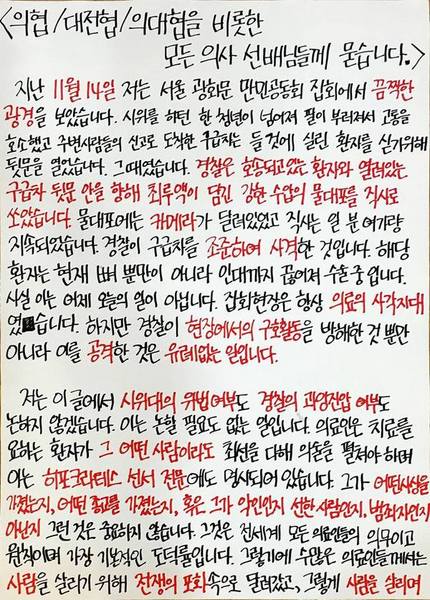 <의협/대전협/의대협을 비롯한
모든 의사 선배님들께 묻습니다.>
지난 11월 14일 저는 서울 광화문 만민공동회 집회에서 끔찍한
광경을 보았습니다. 시위를 하던 한 청년이 넘어져 팔이 부러져서 고통을
호소했고 주변사람들의 신고로 도착한 구급차는 들것에 실린 환자를 싣기위해
뒷문을 열었습니다. 그 때였습니다. 경찰은 호송되고있는 환자와 열려있는
구급차 뒷문 안을 향해 최루액이 담긴 강한 수압의 물대포를 직사로
쏘았습니다. 물대포에는 카메라가 달려있었고 직사는 일 분 여가량
지속되었습니다. 경찰이 구급차를 조준하여 사격한 것입니다. 해당
환자는 현재 뼈 뿐만이 아니라 인대까지 끊어져 수술 중 입니다.
사실 이는 어제 오늘의 일이 아닙니다. 집회현장은 항상 의료의 사각지대
였습니다. 하지만 경찰이 현장에서의 구호활동을 방해한 것 뿐만
아니라 이를 공격한 것은 유례없는 일입니다.
저는 이 글에서 시위대의 위법여부도 경찰의 과잉진압 여부도
논하지 않겠습니다. 이는 논할 필요도 없는 일입니다. 의료인은 치료를
요하는 환자가 그 어떤 사람이라도 최선을 다해 의술을 펼쳐야 하며
이는 히포크라테스 선서 전문에도 명시되어 있습니다. 그가 어떤사상을
가졌는지, 어떤 종교를 가졌는지, 혹은 그가 악인인지 선한 사람인지, 범죄자인지
아닌지 그런 것은 중요하지 않습니다. 그것은 전세계 모든 의료인들의 의무이고
원칙이며 가장 기본적인 도덕률입니다. 그렇기에 수많은 의료인들께서는
사람을 살리기 위해 전쟁의 포화속으로 달려갔고, 그렇게 사람을 살리며